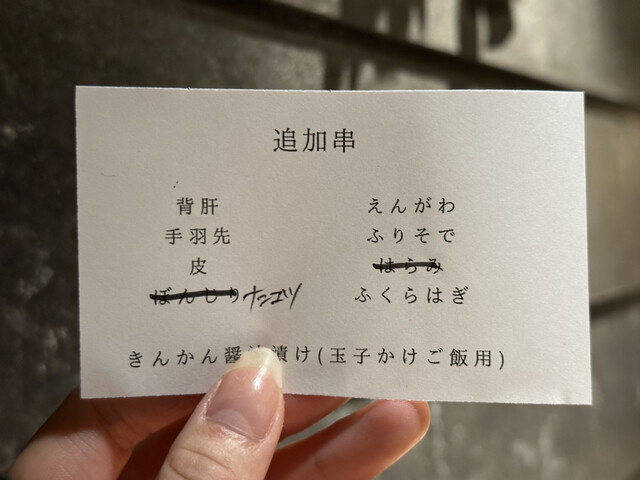 追加串
背肝
手羽先
皮
ぼんじり ナンコツ
えんがわ
ふりそで
はらみ
ふくらはぎ
きんかん醤油漬け(玉子かけご飯用)